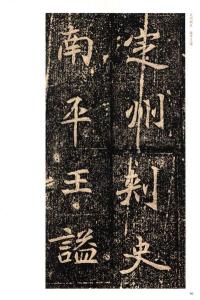 定州刺史
南平王謚